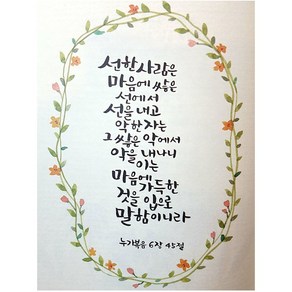 선한 사람은
마음에 쌓은
선에서
선을 내고
악한 자는
그 쌓은 악에서
악을 내나니
이는
마음에 가득한
것을 입으로
말함이니라
누가복음 6장 45절